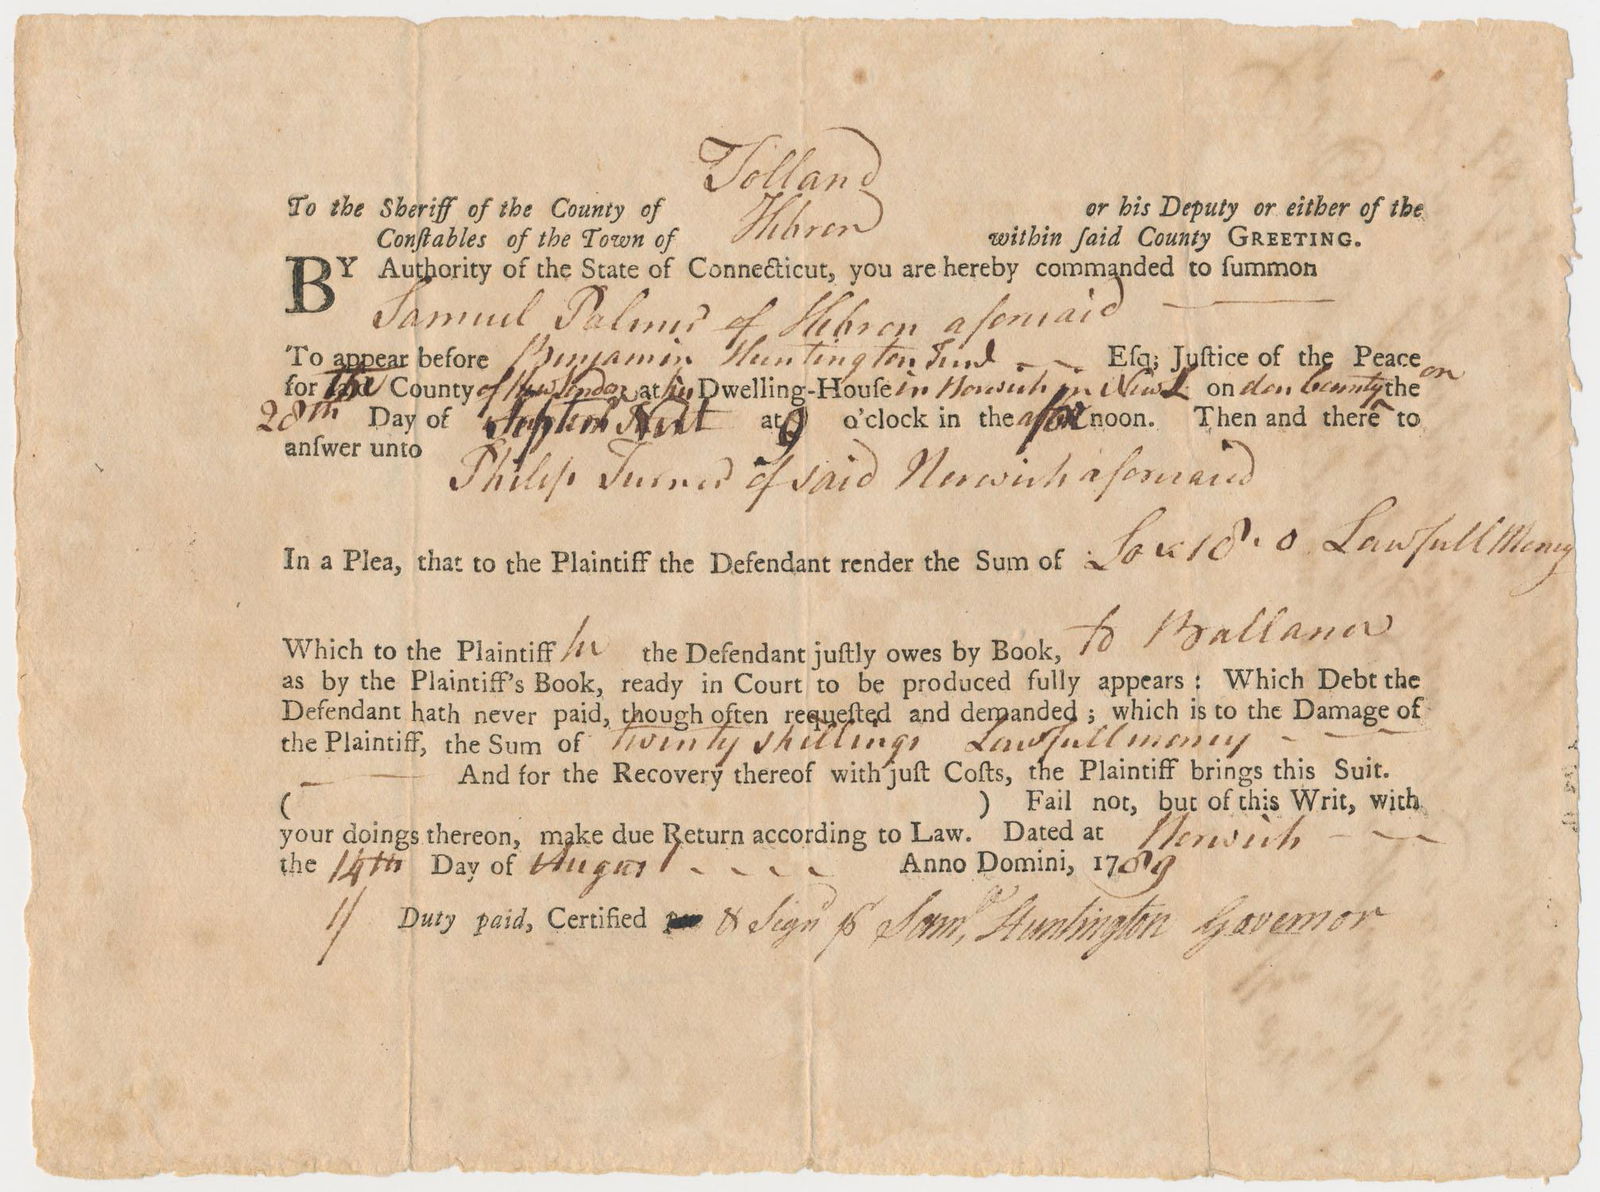 Tolland
To the Sheriff of the County of or his Deputy or either of the
Conſtables of the Town of Hebron within ſaid County GREETING.
BY Authority of the State of Connecticut, you are hereby commanded to ſummon
Samuel Palmer of Hebron aforesaid
To appear before Benjamin Huntington Eſq; Juſtice of the Peace
for the County of New London at his Dwelling-Houſe in Norwich in New L on don County on the
28th Day of Septem Next at 9 o'clock in the noon. Then and there to
anſwer unto
Philip Turner of said Norwich aforesaid
In a Plea, that to the Plaintiff the Defendant render the Sum of 18 . 0 Lawfull Money
Which to the Plaintiff he the Defendant juſtly owes by Book, to Ballance
as by the Plaintiff's Book, ready in Court to be produced fully appears : Which Debt the
Defendant hath never paid, though often requeſted and demanded ; which is to the Damage of
the Plaintiff, the Sum of twenty shillings Lawfull money
And for the Recovery thereof with juſt Coſts, the Plaintiff brings this Suit.
( ) Fail not, but of this Writ, with
your doings thereon, make due Return according to Law. Dated at Norwich
the 14th Day of August Anno Domini, 1789
1/ Duty paid, Certified & Signd pr Saml. Huntington Governor